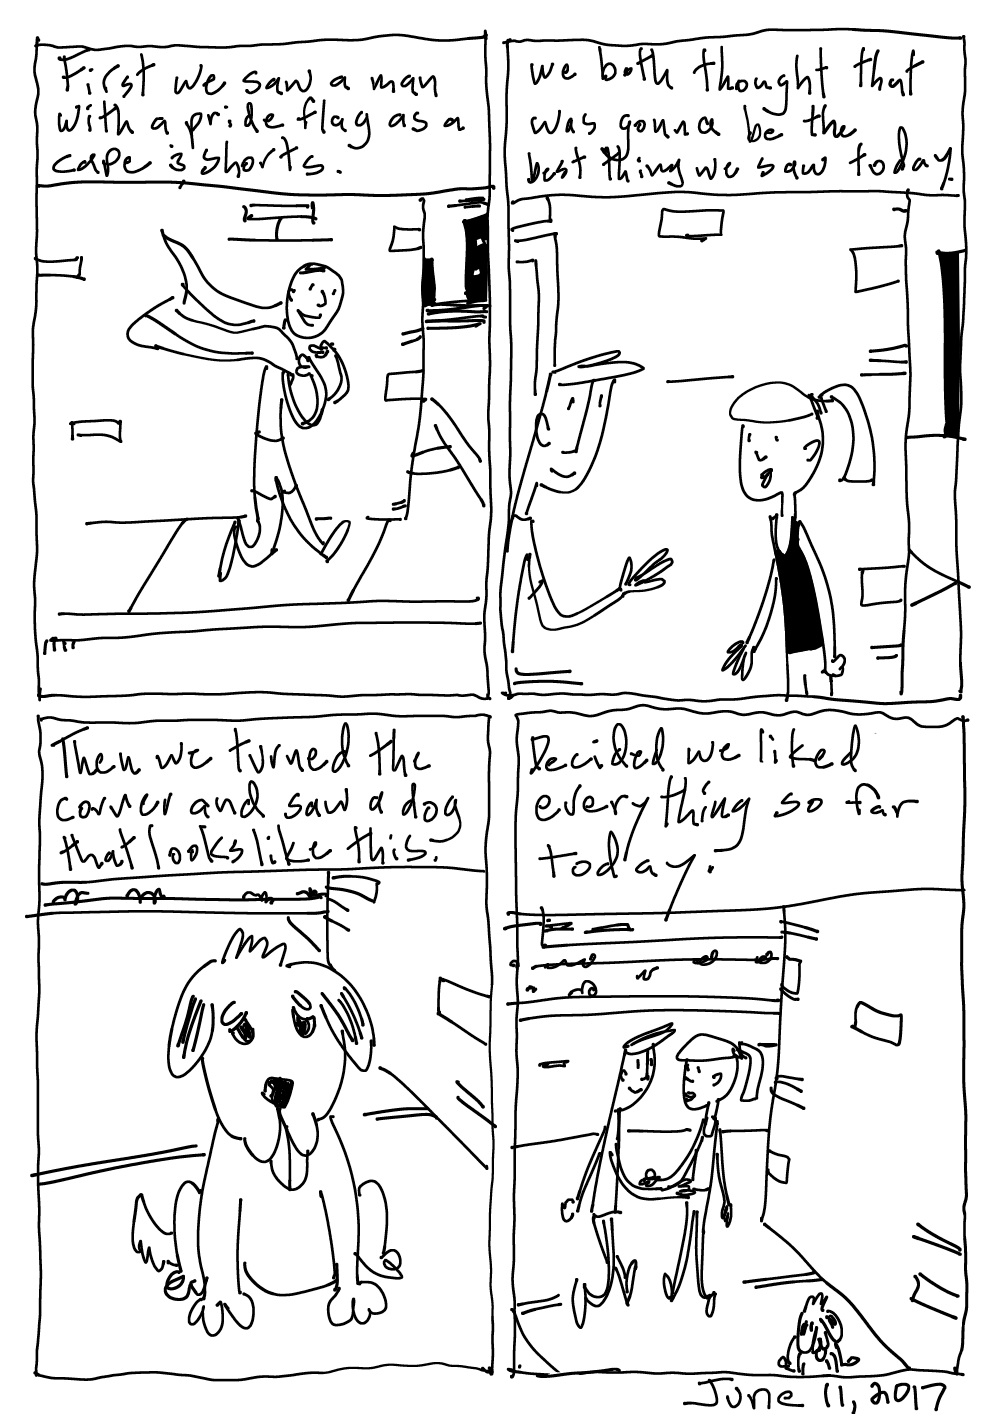 First we saw a man
with a pride flag as a
cape & shorts.
we both thought that
was gonna be the
best thing we saw today.
Then we turned the
corner and saw a dog
that looks like this.
Decided we liked
everything so far
today.
June 11, 2017